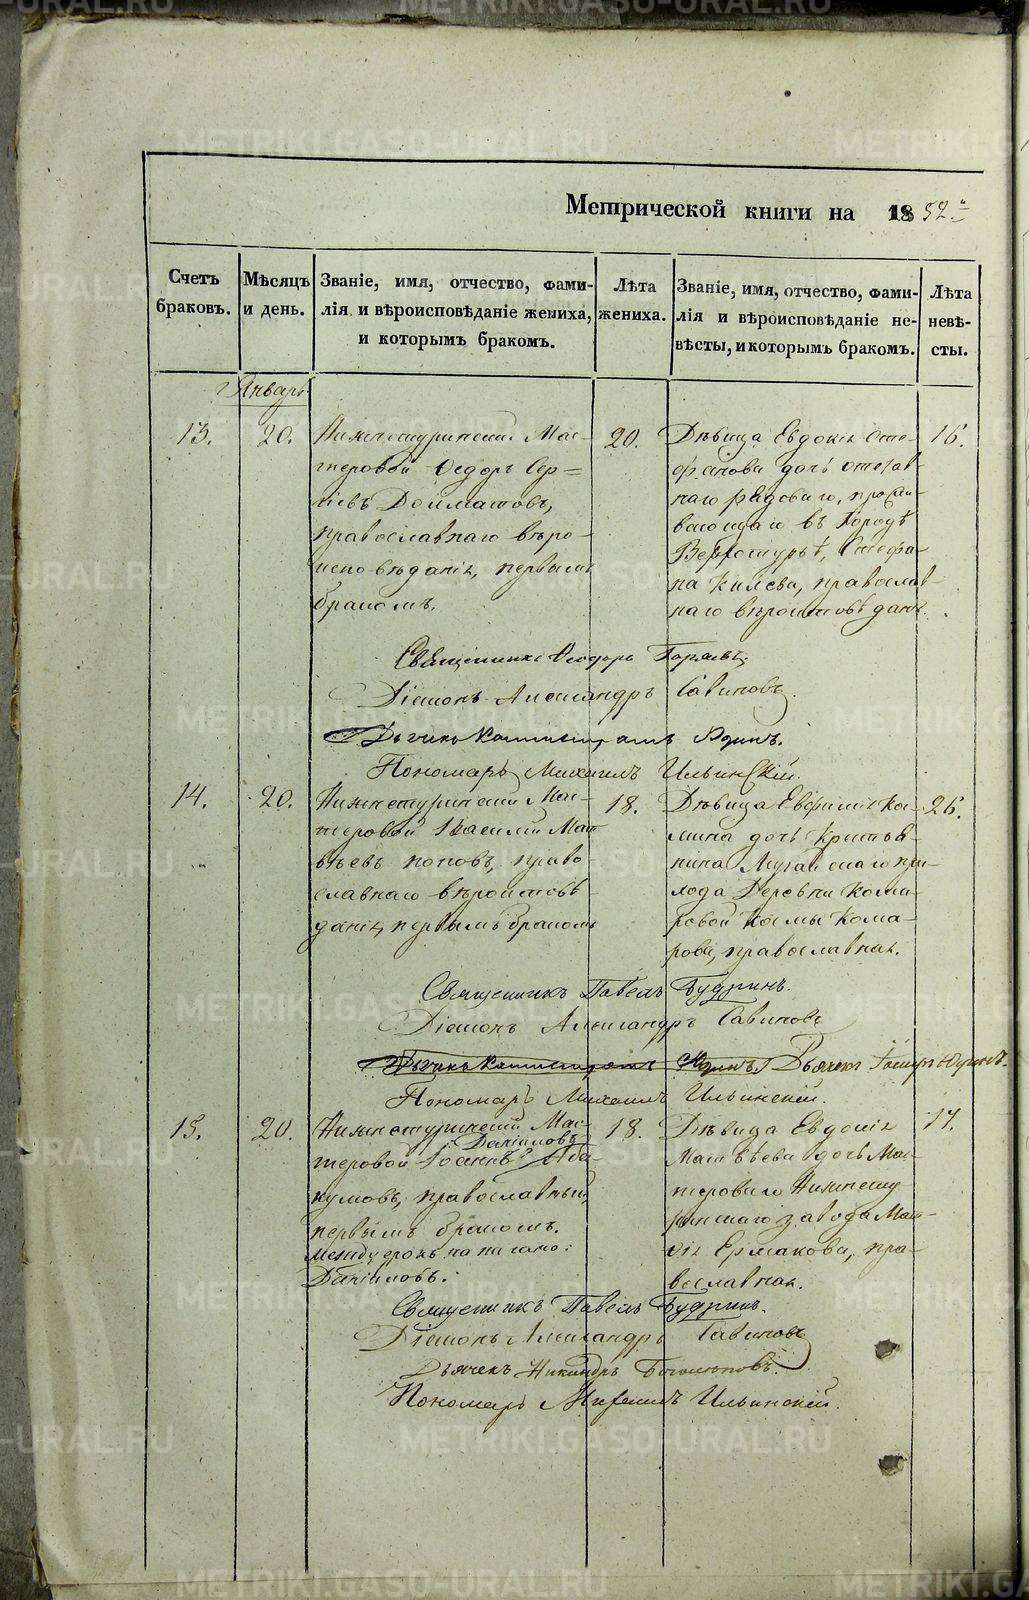 Метрической книги на 1852.
Счетъ браковъ.
Мѣсяцъ и день.
Званіе, имя, отчество, фами-
лія и вѣроисповѣданіе жениха,
и которымъ бракомъ.
Лѣта жениха.
Званіе, имя, отчество, фами-
лія и вѣроисповѣданіе не-
вѣсты, и которымъ бракомъ.
Лѣта невѣ-
сты.
Январь
13. 20.
Нижнетуринскій Мас-
теровой Ѳедоръ Сер-
гіевъ Долматовъ,
православнаго вѣро-
исповѣданія, первымъ
бракомъ.
20.
Дѣвица Евдокія Сте-
фанова дочь отстав-
наго рядоваго, прожи-
вающаго въ Городѣ
Верхотурьѣ, Стефа-
на Киляева, православ-
наго вѣроисповѣданія.
16.
Священникъ Ѳеодоръ
Діаконъ Александръ Савиновъ
Дьячекъ Калистратъ Юдинъ.
Пономарь Михаилъ Ильинскій.
14. 20.
Нижнетуринскій Мас-
теровой Василій Мат-
вѣевъ Поповъ, право-
славнаго вѣроисповѣ-
данія, первымъ бракомъ
18.
Дѣвица Евфимія Ко-
мина дочь крестья-
нина при-
хода Деревни Кома-
ровой Космы Кома-
рова, православная.
26.
Священникъ Павелъ Будринъ.
Діаконъ Александръ Савиновъ
Дьячекъ Калистратъ Юдинъ Дьячекъ
Пономарь Михаилъ Ильинскій.
15. 20.
Нижнетуринскій Мас-
Даніиловъ
теровой Іоаннъ Аба-
кумовъ, православный,
первымъ бракомъ.
Между строкъ написано:
Даніиловъ.
18.
Дѣвица Евдокія
Матвѣева дочь Мас-
тероваго Нижнету-
ринскаго завода Мат-
ѳія Ермакова, пра-
вославная.
17.
Священникъ Павелъ Будринъ.
Діаконъ Александръ Савиновъ
Дьячекъ Никандръ
Пономарь Михаилъ Ильинскій.
METRIKI.GASO-URAL.RU